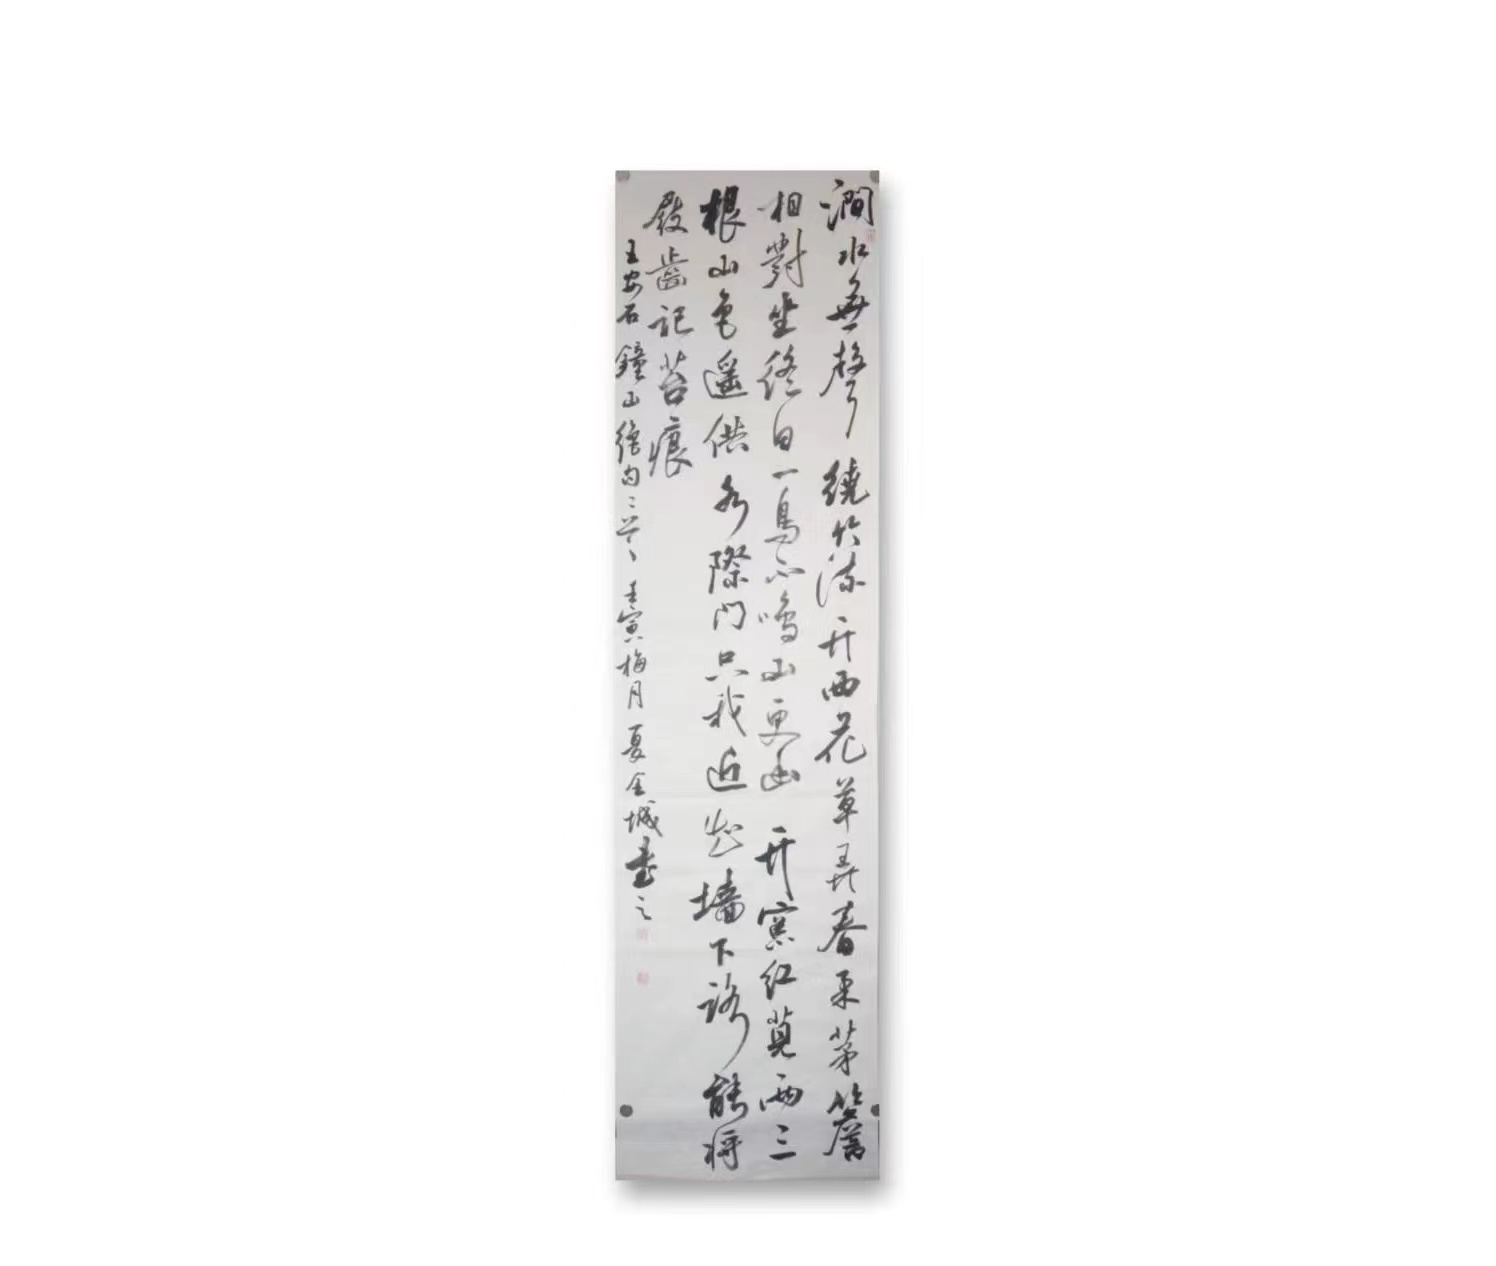 澗水無聲繞竹流竹西花草弄春柔茅簷
相對坐終日一鳥不鳴山更幽竹窗紅莧兩三
根山色遥供水際門只我近知墙下路能將
屐齒記苔痕
王安石鐘山絶句二首壬寅梅月夏金城書之